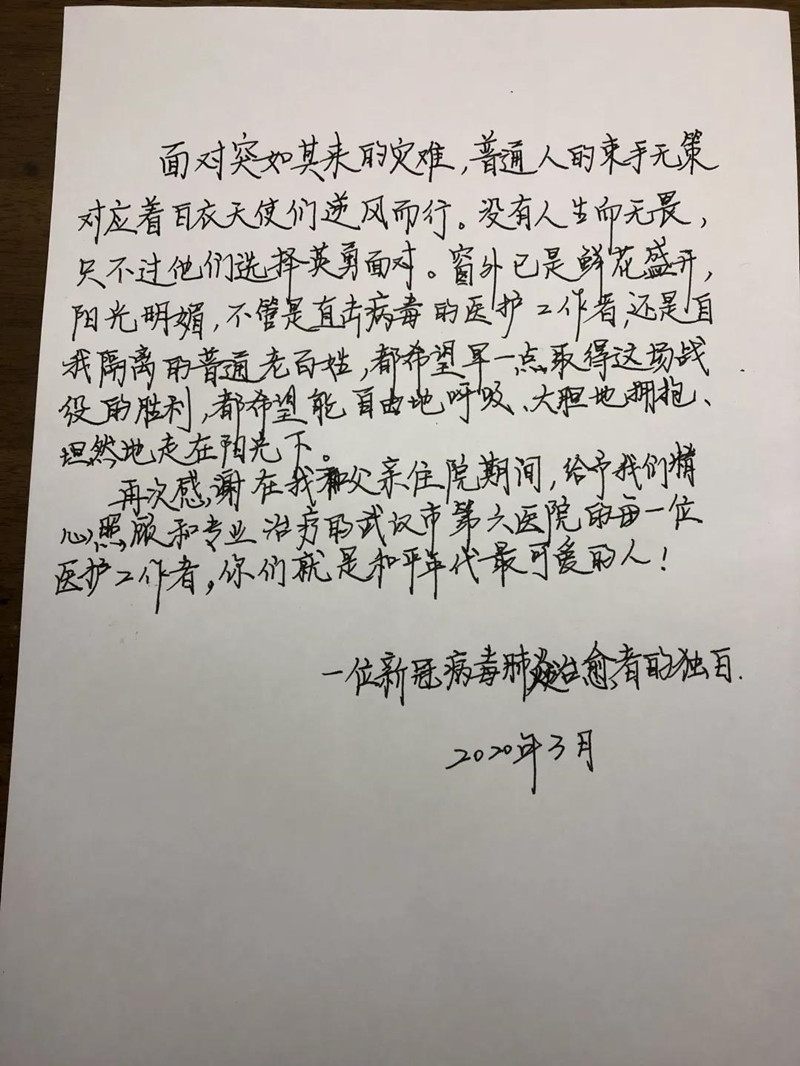 面对突如其来的灾难，普通人的束手无策
对应着白衣天使们逆风而行。没有人生而无畏，
只不过他们选择英勇面对。窗外已是鲜花盛开，
阳光明媚，不管是直击病毒的医护工作者，还是自
我隔离的普通老百姓，都希望早一点取得这场战
役的胜利，都希望能自由地呼吸、大胆地拥抱、
坦然地走在阳光下。
再次感谢在我和父亲住院期间，给予我们精
心照顾和专业治疗的武汉市第六医院的每一位
医护工作者，你们就是和平年代最可爱的人！
一位新冠病毒肺炎治愈者的独白.
2020年3月